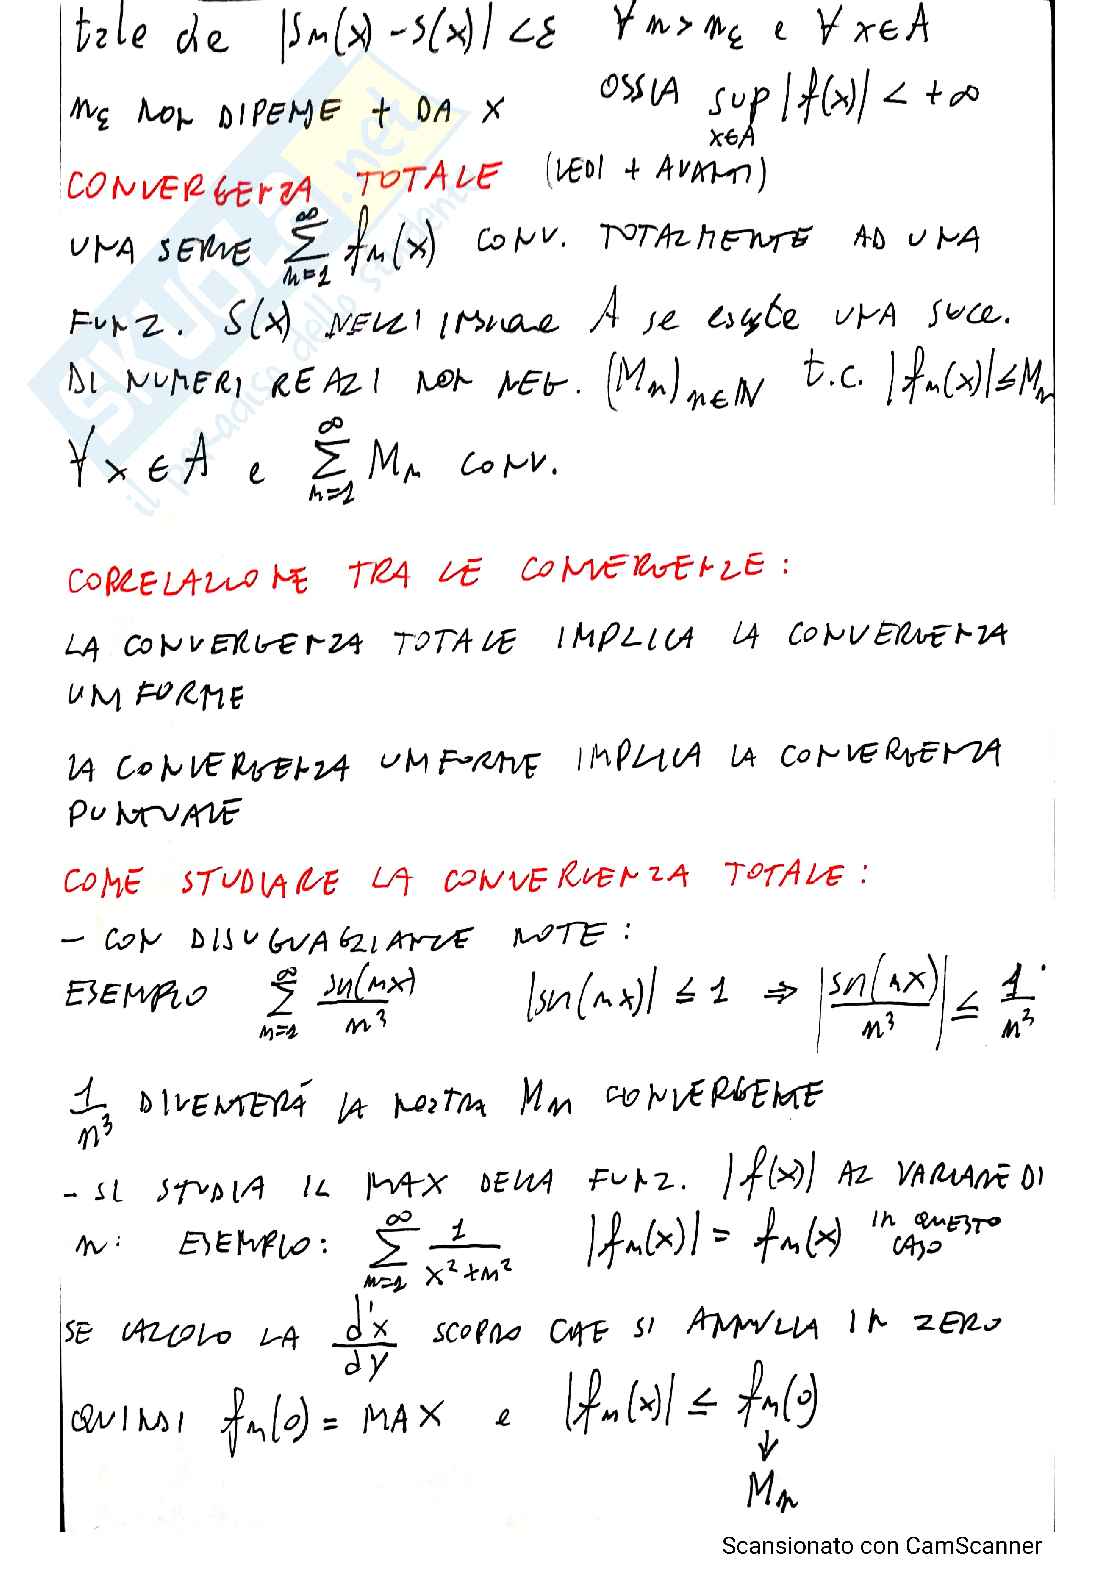 tale che |Sn(x) - S(x)| < ε ∀ n > nε e ∀ x ∈ A
nε NON DIPENDE + DA X OSSIA sup x∈A |f(x)| < +∞
CONVERGENZA TOTALE (VEDI + AVANTI)
UNA SERIE ∑ n=1 ∞ fn(x) CONV. TOTALMENTE AD UNA
FUNZ. S(x) NELL'insieme A se esiste UNA succ.
DI NUMERI REALI NON NEG. (Mn)n∈N t.c. |fn(x)| ≤ Mn
∀ x ∈ A e ∑ n=1 ∞ Mn CONV.
CORRELAZIONE TRA LE CONVERGENZE:
LA CONVERGENZA TOTALE IMPLICA LA CONVERGENZA
UNIFORME
LA CONVERGENZA UNIFORME IMPLICA LA CONVERGENZA
PUNTUALE
COME STUDIARE LA CONVERGENZA TOTALE:
- CON DISUGUAGLIANZE NOTE:
ESEMPIO ∑ n=1 ∞ sin(nx)/n³ |sin(nx)| ≤ 1 ⇒ |sin(nx)/n³| ≤ 1/n³
1/n³ DIVENTERÁ LA NOSTRA Mn CONVERGENTE
- SI STUDIA IL MAX DELLA FUNZ. |f(x)| AL VARIARE DI
n: ESEMPIO: ∑ n=1 ∞ 1/(x²+n²) |fn(x)| = fn(x) IN QUESTO CASO
SE CALCOLO LA dx/dy SCOPRO CHE SI ANNULLA IN ZERO
QUINDI fn(0) = MAX e |fn(x)| ≤ fn(0)
↓
Mn
Scansionato con CamScanner
SKUOLA.net
il paradiso dello studente